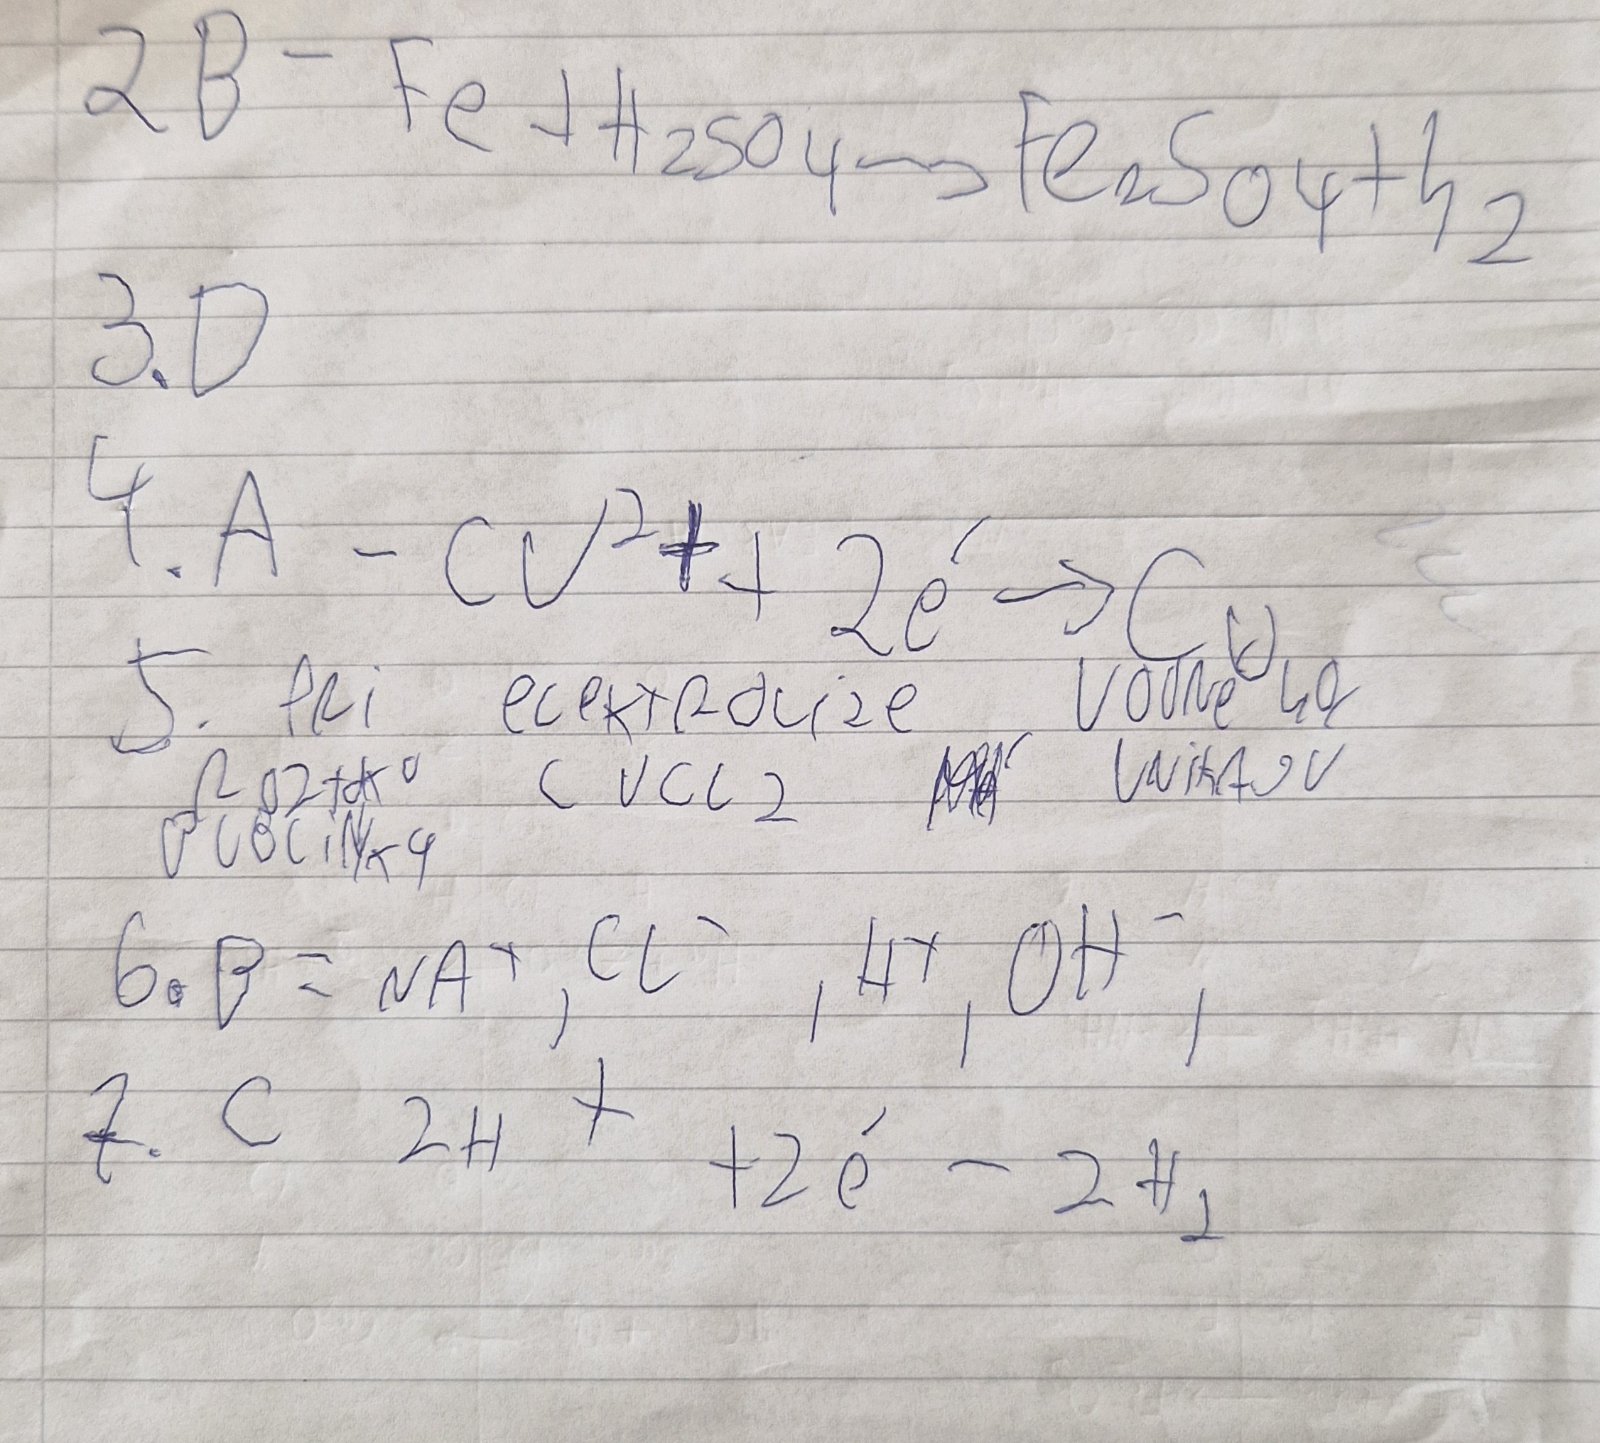 2B - Fe + H2SO4 → Fe2SO4 + h2
3. D
4. A - CU²⁺ + 2é → CU
5. PRi elektrolize VODNeho
ROZtoKU CUCl2 VNiKAJU
6. B = NA⁺, Cl⁻, H⁺, OH⁻,
7. C 2H⁺ + 2é - 2H2